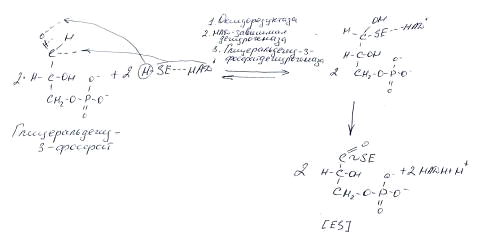 1. Оксидоредуктаза
2. НАД-зависимая
дегидрогеназа
3. Глицеральдегид-3-
фосфатдегидрогеназа
O H
C
2· H-C-OH O⁻ + 2 H-SE---НАД⁺
CH₂-O-P-O⁻
O
Глицеральдегид-
3-фосфат
OH
H-C-SE---НАД⁺
H-C-OH
2 CH₂-O-P-O⁻
O
C=O
~SE
2 H-C-OH O⁻ + 2 НАДН+H⁺
CH₂-O-P-O⁻
O
[ES]